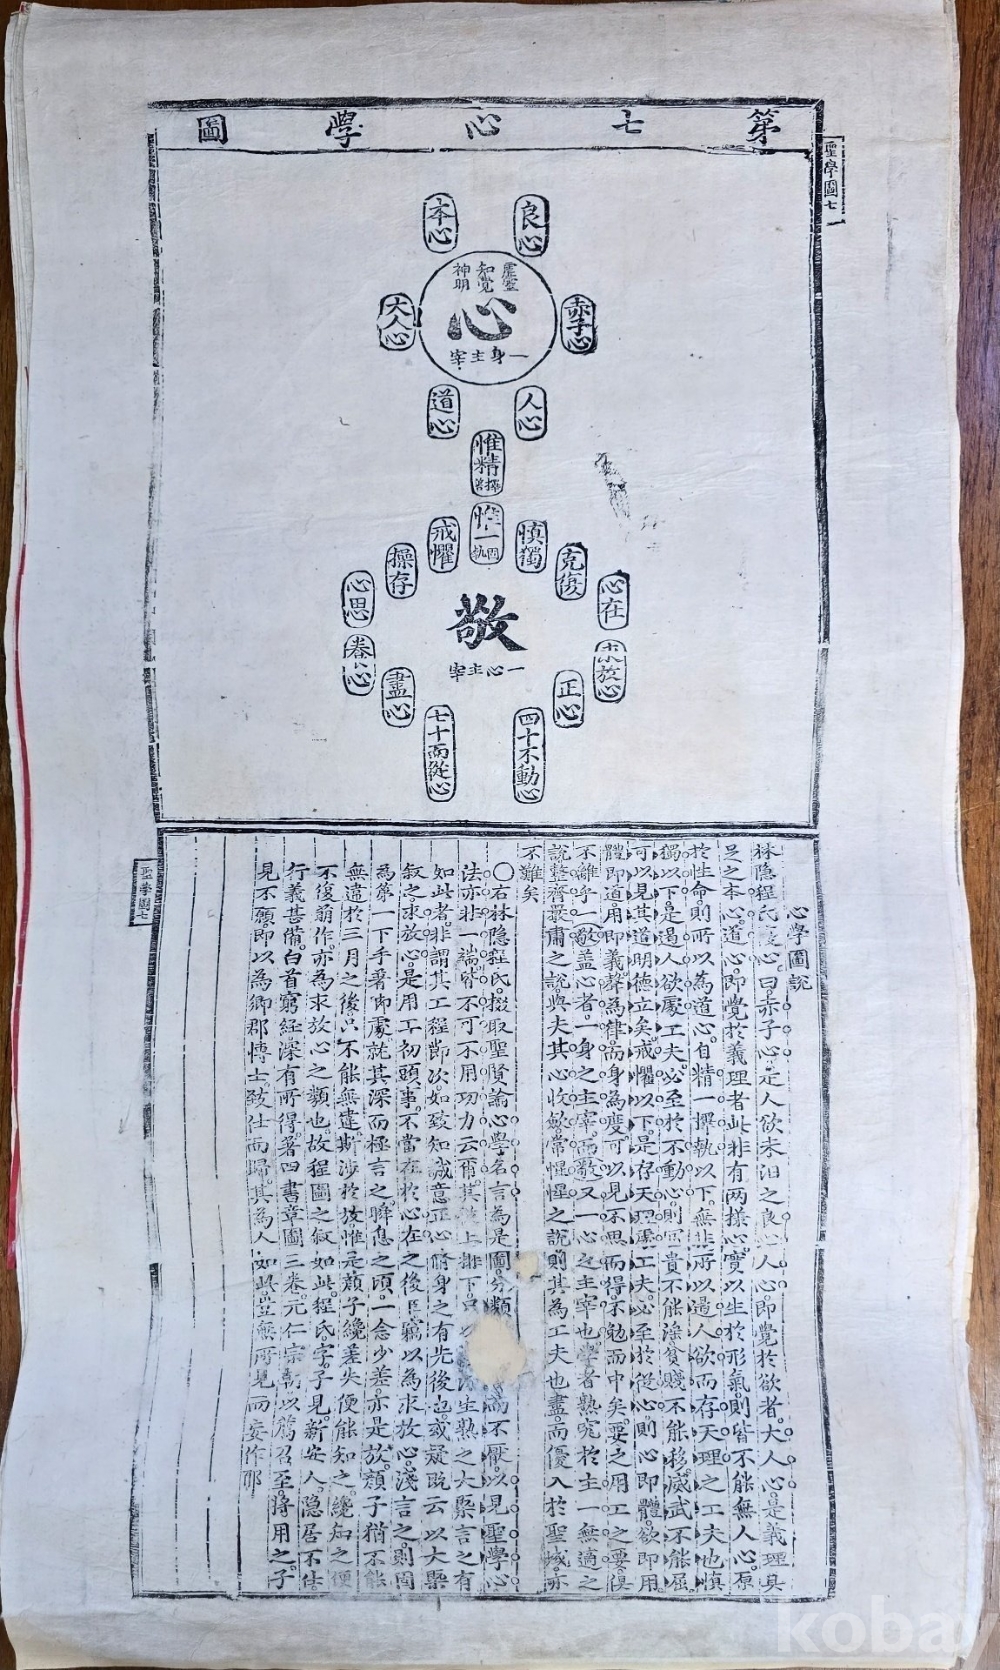 第七心學圖
聖學圖七
良心
本心
虛靈
知覺
神明
心
一身主宰
赤子心
大人心
人心
道心
惟精
擇善
惟一
固執
愼獨
戒懼
克復
操存
心在
心思
敬
一心主宰
求放心
養心
正心
盡心
四十不動心
七十而從心
聖學圖七
心學圖說
林隱程氏曰赤子心是人欲未汨之良心人心即覺於欲者大人心是義理具
足之本心道心即覺於義理者此非有兩樣心實以生於形氣則皆不能無人心原
於性命則所以為道心自精一擇執以下無非所以遏人欲而存天理之工夫也愼
獨以下是遏人欲處工夫必至於不動心則富貴不能淫貧賤不能移威武不能屈
可以見其道明德立矣戒懼以下是存天理處工夫必至於從心則心即體欲即用
體即道用即義聲為律而身為度可以見不思而得不勉而中矣要之用工之要俱
不離乎一敬蓋心者一身之主宰而敬又一心之主宰也學者熟究於主一無適之
說整齊嚴肅之說與夫其心收斂常惺惺之說則其為工夫也盡而優入於聖域亦
不難矣
○右林隱程氏掇取聖賢論心學名言為是圖分類而不厭以見聖學心
法亦非一端皆不可不用功力云爾其上排下只以生熟之大槩言之有
如此者非謂其工程節次如致知誠意正心脩身之有先後也或疑旣云以大槩
叙之求放心是用工初頭事不當在於心在之後臣竊以為求放心淺言之則固
為第一下手著脚處就其深而極言之瞬息之頃一念少差亦是放顔子猶不能
無違於三月之後只不能無違斯涉於放惟是顔子纔差失便能知之纔知之便
不復萌作亦為求放心之類也故程圖之叙如此程氏字子見新安人隱居不仕
行義甚備白首窮經深有所得著四書章圖三卷元仁宗朝以薦召至將用之子
見不願即以為鄉郡博士致仕而歸其為人如此豈無所見而妄作耶
kobay